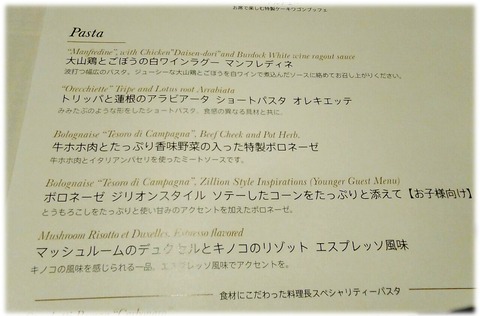 お席で楽しむ特製ケーキワゴンブッフェ
Pasta
"Manfredine", with Chicken"Daisen-dori"and Burdock White wine ragout sauce
大山鶏とごぼうの白ワインラグー マンフレディネ
波打つ幅広のパスタ。ジューシーな大山鶏とごぼうを白ワインで煮込んだソースに絡めてお召し上がりください。
"Orecchiette" Tripe and Lotus root Arrabiata
トリッパと蓮根のアラビアータ ショートパスタ オレキエッテ
みみたぶのような形をしたショートパスタ。食感の異なる具材と共に。
Bolognaise "Tesoro di Campagna", Beef Cheek and Pot Herb.
牛ホホ肉とたっぷり香味野菜の入った特製ボロネーゼ
牛ホホ肉とイタリアンパセリを使ったミートソースです。
Bolognaise "Tesoro di Campagna", Zillion Style Inspirations (Younger Guest Menu)
ボロネーゼ ジリオンスタイル ソテーしたコーンをたっぷりと添えて【お子様向け】
とうもろこしをたっぷりと使い甘みのアクセントを加えたボロネーゼ。
Mushroom Risotto et Duxelles, Espresso flavored
マッシュルームのデュクセルとキノコのリゾット エスプレッソ風味
キノコの風味を感じられる一品。エスプレッソ風味でアクセントを。
食材にこだわった料理長スペシャリティーパスタ